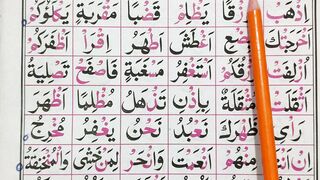 اِذْهَبْ قَا يَظْلِمُ قَضْبًا مَقْرَبَةٍ يَكْلَؤُكُمْ
اَخْرَجَكَ ضَعْ اَغْطَشَ اَظْهَرُ اِقْرَاْ اَظْفَرَكُمْ
اُزْلِفَتْ قُلْتُمْ اَسْتَغْفِرُ مَسْغَبَةٍ فَاصْفَحْ تَصْلِيَةُ
اَثْقَلَتْ مُثْقَلَةٌ يَاْذَنْ تَذْهَلُ مُظْلِمًا اَظْهَرَ
رَاْىَ ظَهْرَكَ نَعْبُدُ نَحْنُ يَغْفِرُ مُخْرَجَ
مِنْهُمْ اَنْعَمْتَ وَانْحَرْ يَخْشٰى وَالْمُنْخَنِقَةُ